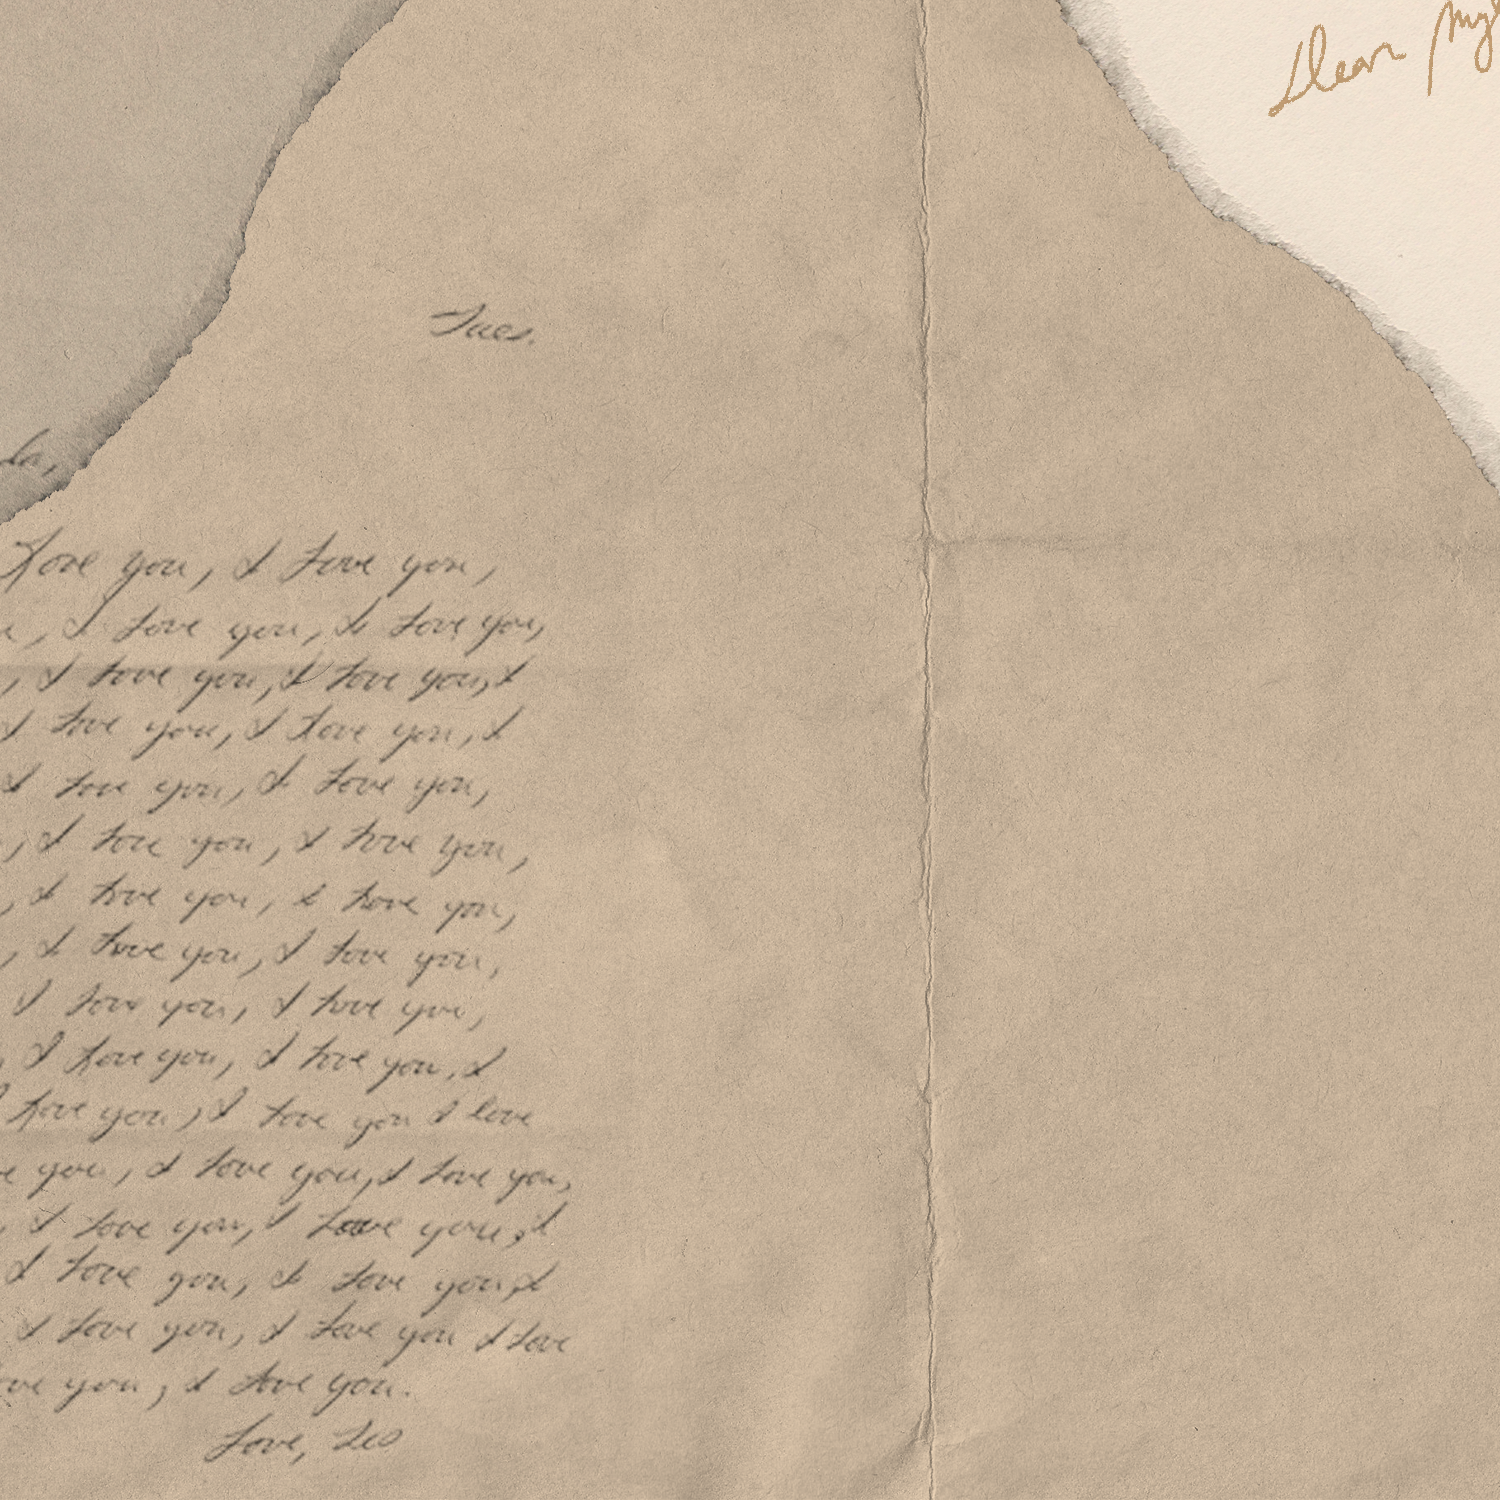 Dear my
Tues.
da,
Love you, I love you,
u, I love you, I love you,
, I love you, I love you, I
I love you, I love you, I
I love you, I love you,
, I love you, I love you,
, I love you, I love you,
, I love you, I love you,
I love you, I love you,
, I love you, I love you, I
love you, I love you I love
ve you, I love you, I love you,
, I love you, I love you, I
I love you, I love you, I
I love you, I love you I love
ove you, I love you.
Love, Leo